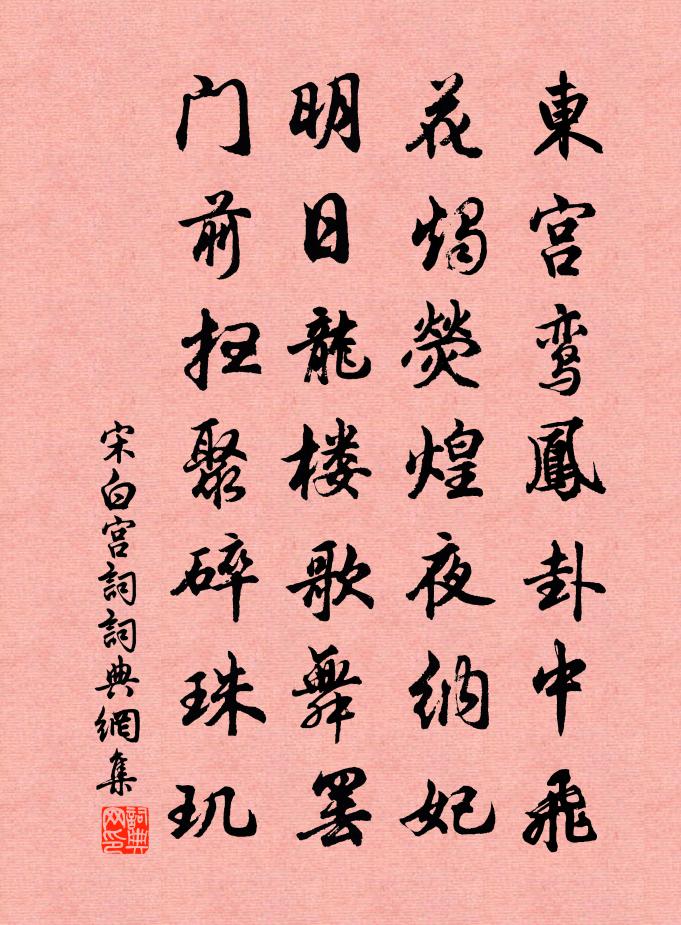 東宫鸾鳳卦中飛
花燭熒煌夜纳妃
明日龍楼歌舞罢
门前扫聚碎珠玑
宋白宫詞詞典網集
詞典网印